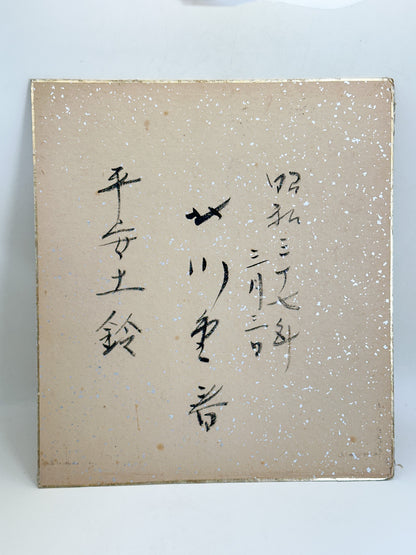 昭和三十七年
三月三日
北川重音
平安土鈴